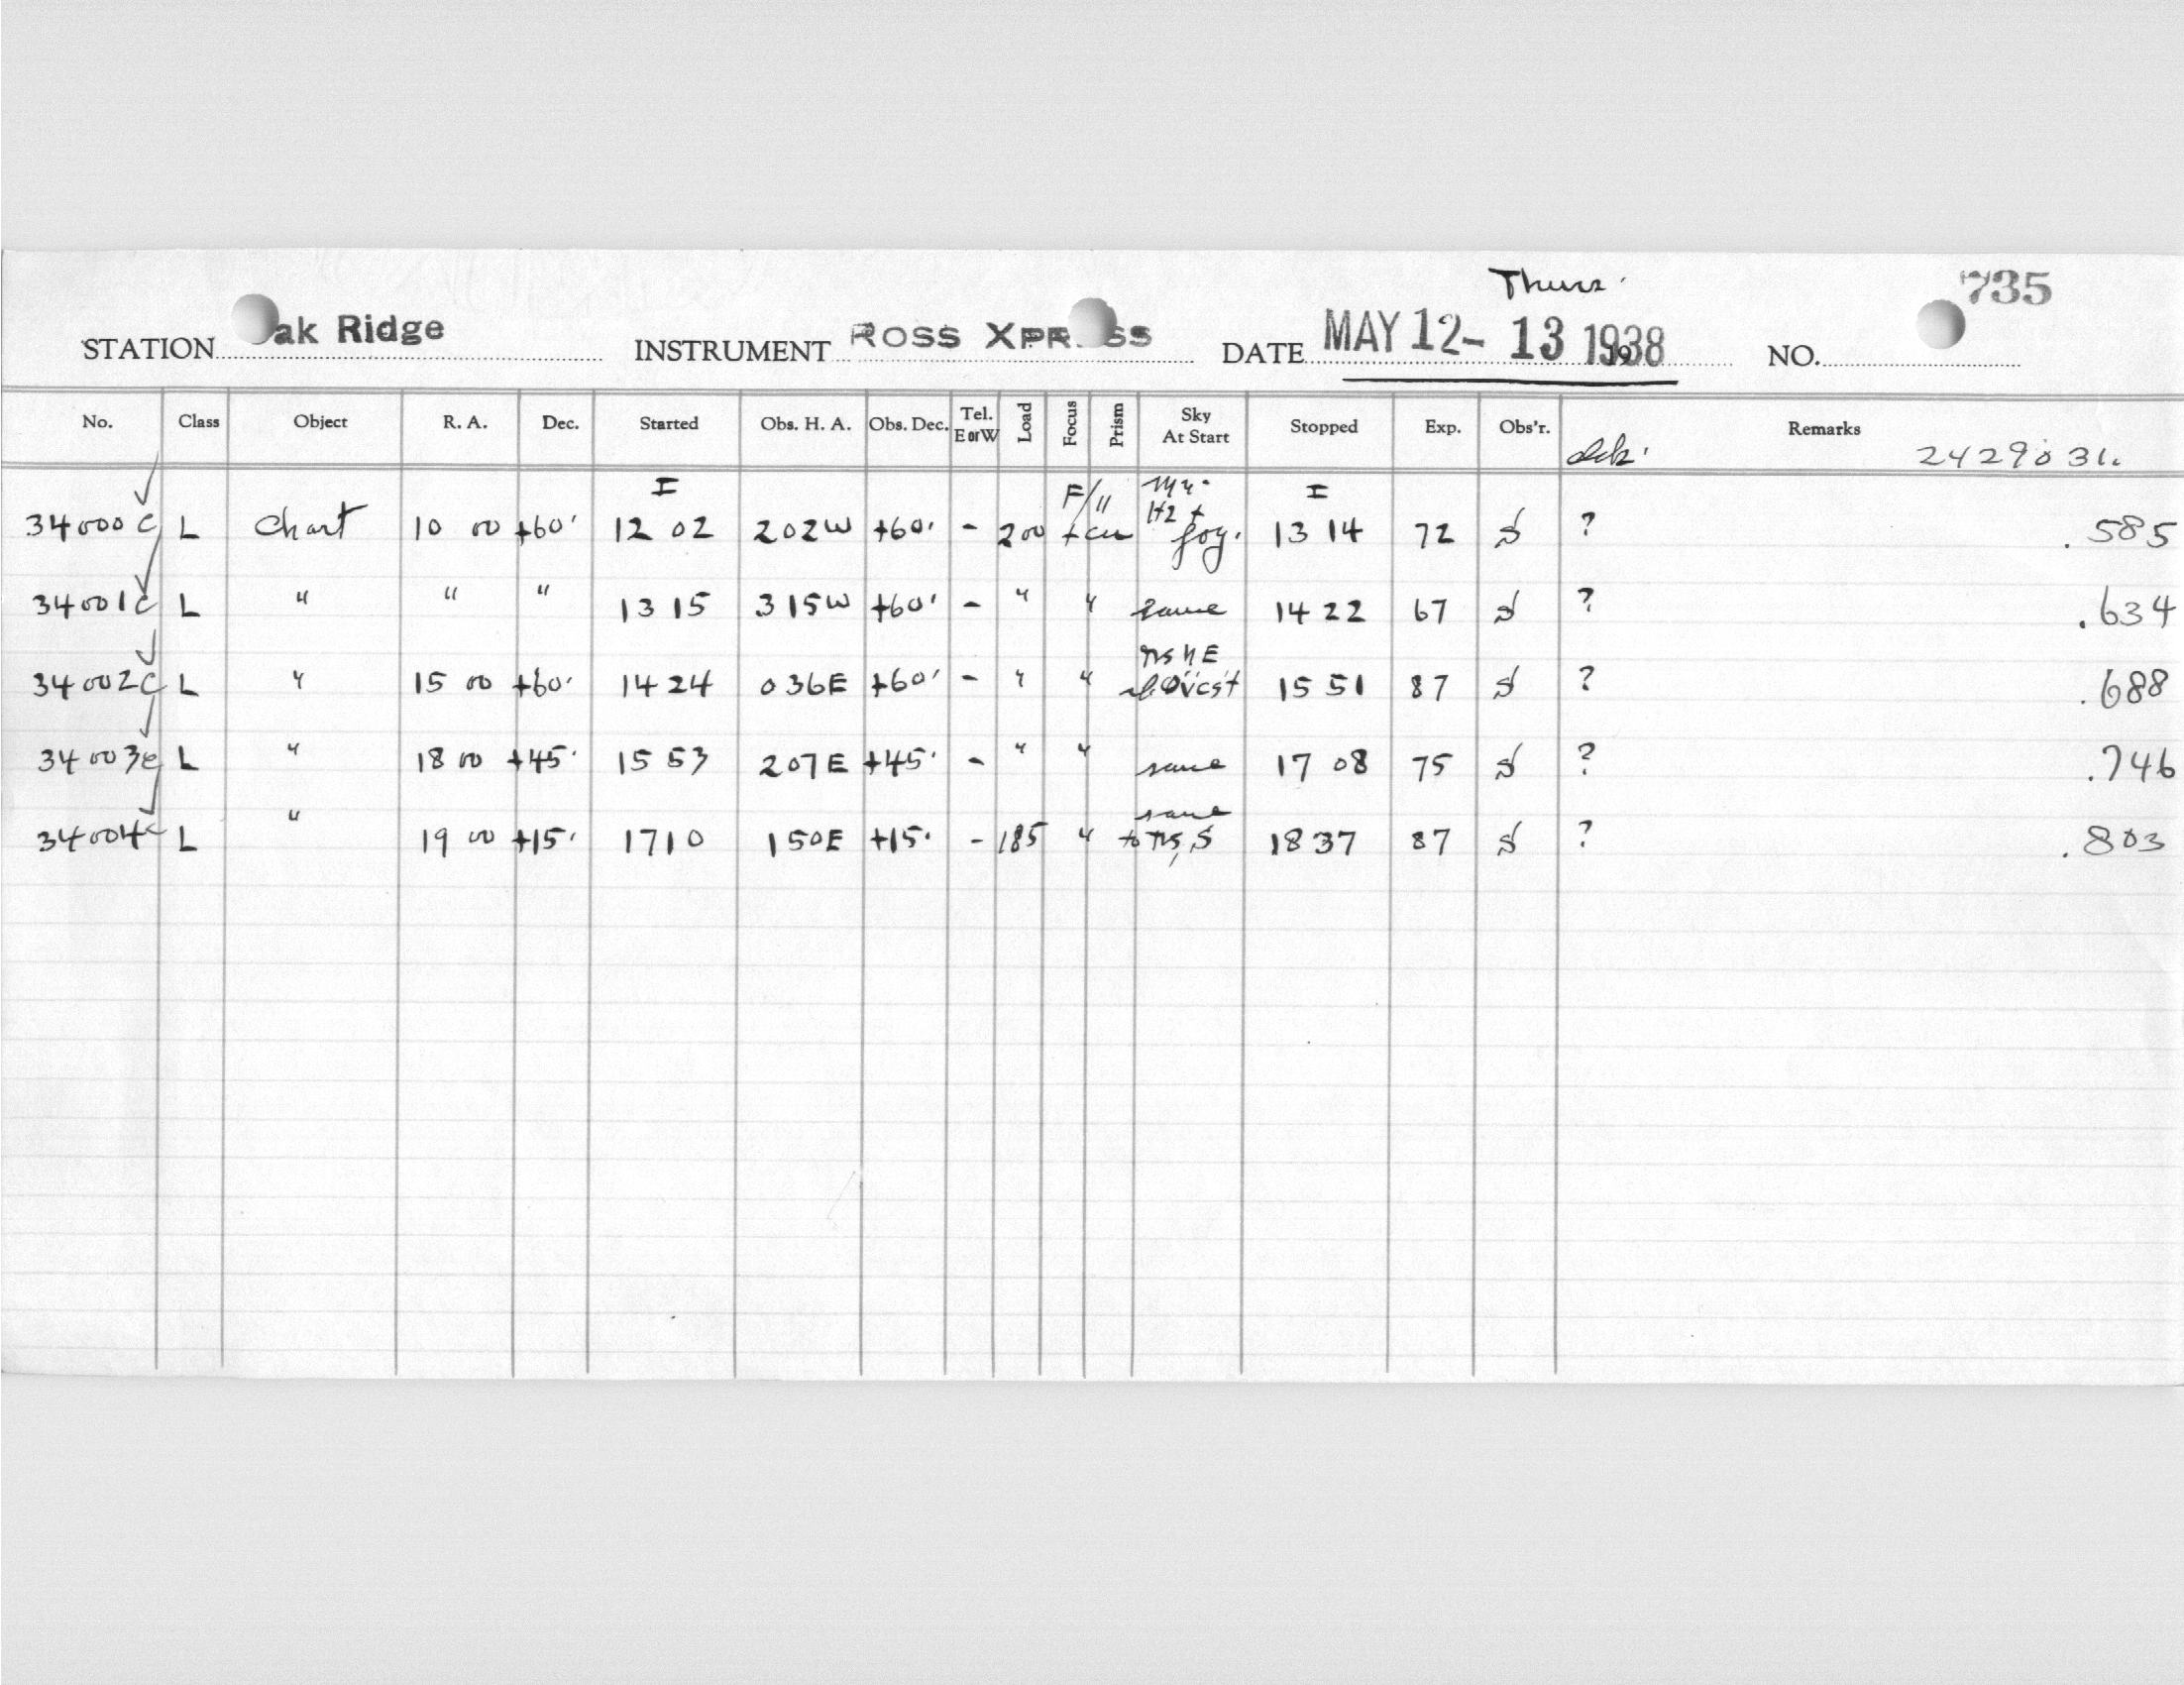 Thurs.
735
STATION ak Ridge INSTRUMENT ROSS XPR SS DATE MAY 12 - 13 1938 NO.
No. Class Object R. A. Dec. Started Obs. H. A. Obs. Dec. Tel. E or W Load Focus Prism Sky At Start Stopped Exp. Obs'r. Remarks
2429031.
I F/" I
34000 C L Chart 10 00 +60° 12 02 202W +60° - 200 Hz + fog. 13 14 72 S ? .585
34001 C L " " " 13 15 315W +60° - " " same 14 22 67 S ? .634
34002 C L " 15 00 +60° 14 24 036E +60° - " " Ovcst 15 51 87 S ? .688
34003 C L " 18 00 +45° 15 53 207E +45° - " " same 17 08 75 S ? .746
34004 C L " 19 00 +15° 17 10 150E +15° - 185 " same to 18 37 87 S ? .803